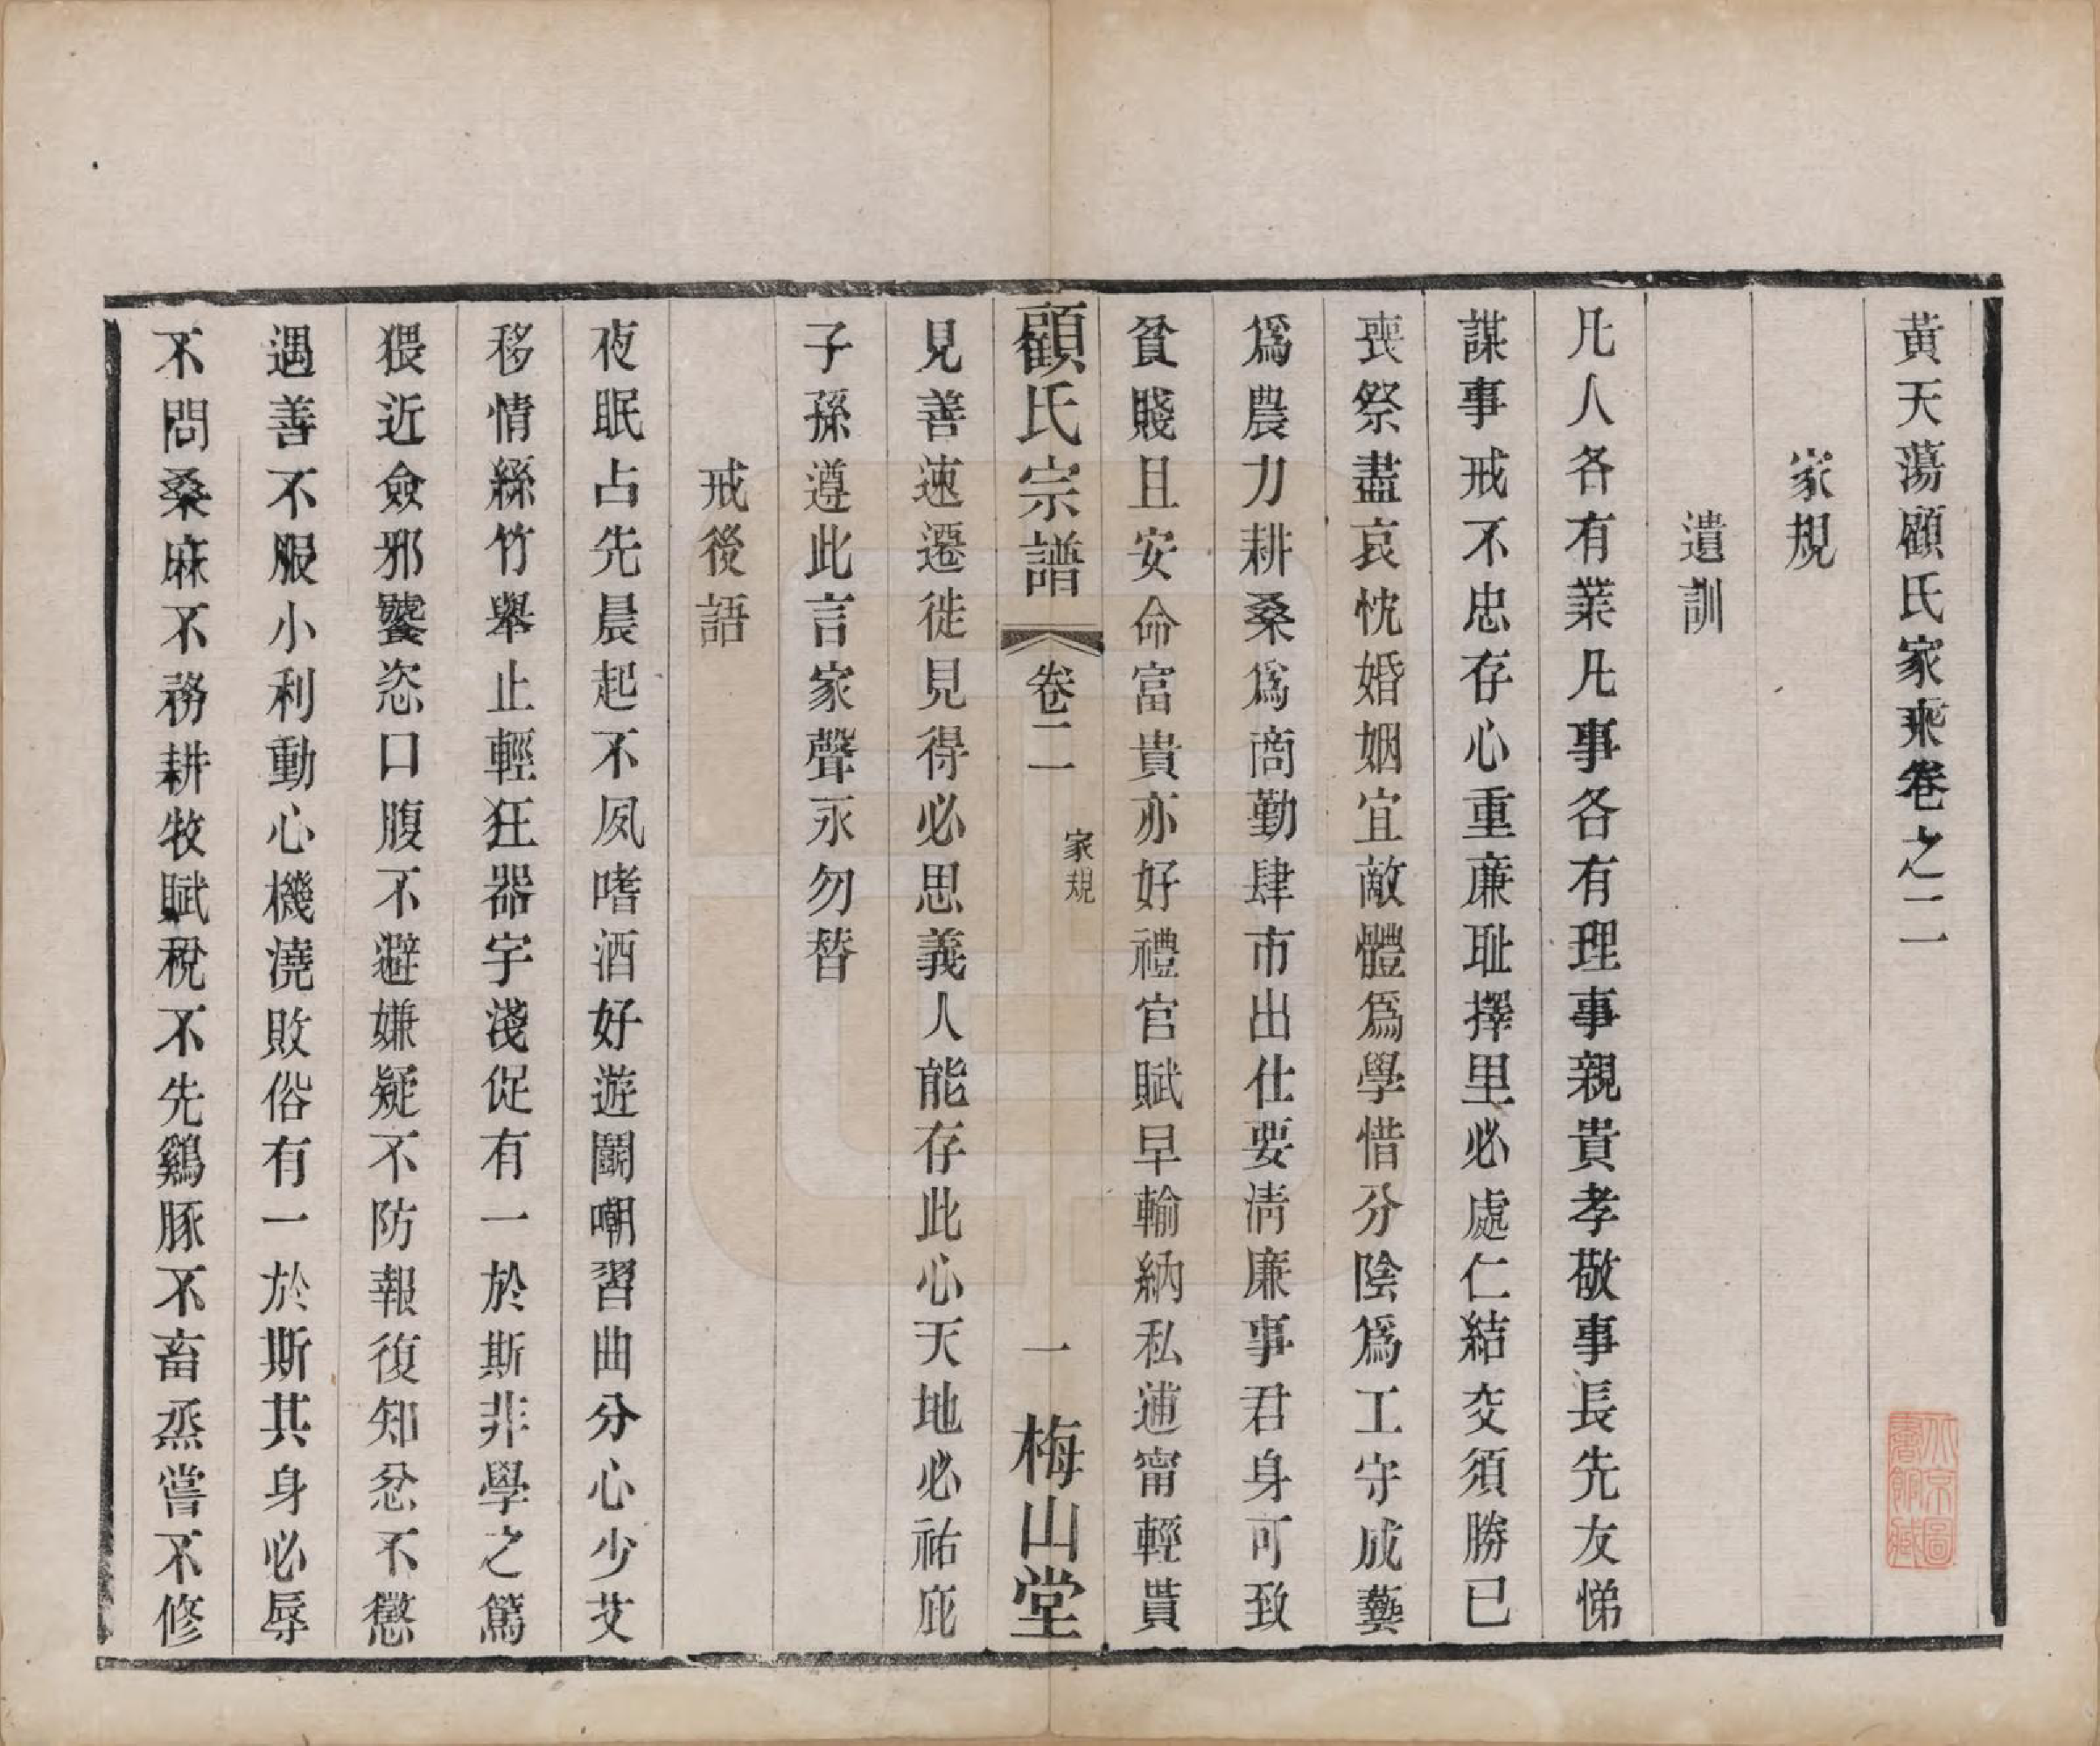 黃天蕩顧氏家乘卷之二
家規
遺訓
凡人各有業凡事各有理事親貴孝敬事長先友悌
謀事戒不忠存心重廉耻擇里必處仁結交須勝已
喪祭盡哀忱婚姻宜敵體爲學惜分陰爲工守成藝
爲農力耕桑爲商勤肆市出仕要淸廉事君身可致
貧賤且安命富貴亦好禮官賦早輸納私逋甯輕貰
顧氏宗譜
卷二
家規
一
梅山堂
見善速遷徙見得必思義人能存此心天地必祐庇
子孫遵此言家聲永勿替
戒後語
夜眠占先晨起不夙嗜酒好遊鬭嘲習曲分心少艾
移情絲竹舉止輕狂器宇淺促有一於斯非學之篤
猥近僉邪饕恣口腹不避嫌疑不防報復知忿不懲
遇善不服小利動心機澆敗俗有一於斯其身必辱
不問桑麻不務耕牧賦稅不先鷄豚不畜烝嘗不修
北京圖書館藏